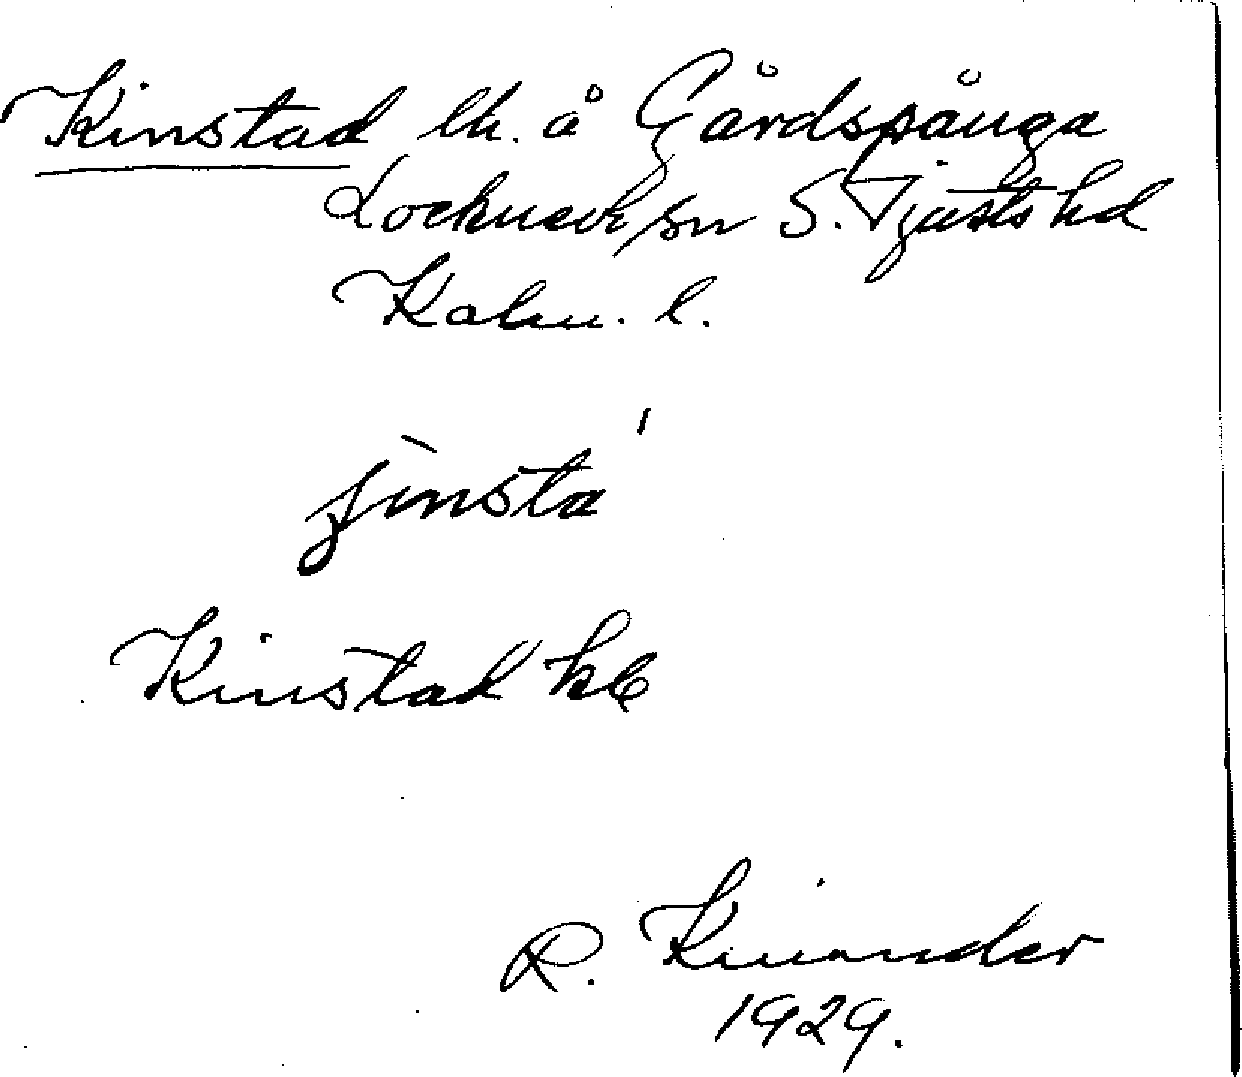 Kinstad lh. å Gårdspånga
Locknevi sn S. Tjusts hd
Kalm. l.
jìnsta´
Kinstad hb
R. Kinander
1929.